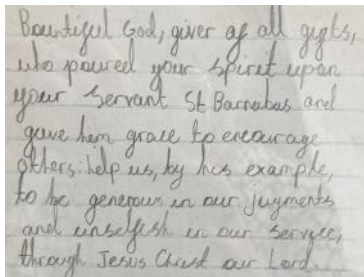 Bountiful God, giver of all gifts,
who poured your spirit upon
your servant St Barnabas and
gave him grace to encourage
others: help us, by his example,
to be generous in our jugments
and unselfish in our service,
through Jesus Christ our Lord.